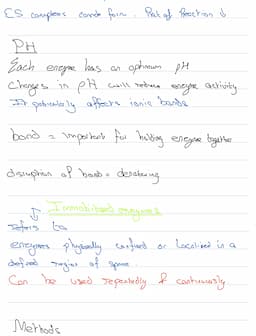 ES complexes can't form. Rate of Reaction ↓
PH
Each enzyme has an optimum pH
Changes in pH will reduce enzyme activity
It particularly affects ionic bonds
bond = important for holding enzyme together
disruption of bond = denaturing
Immobilised enzymes
↓ refers to
enzymes physically confined or localised in a
defined region of space.
Can be used repeatedly & continuously
Methods